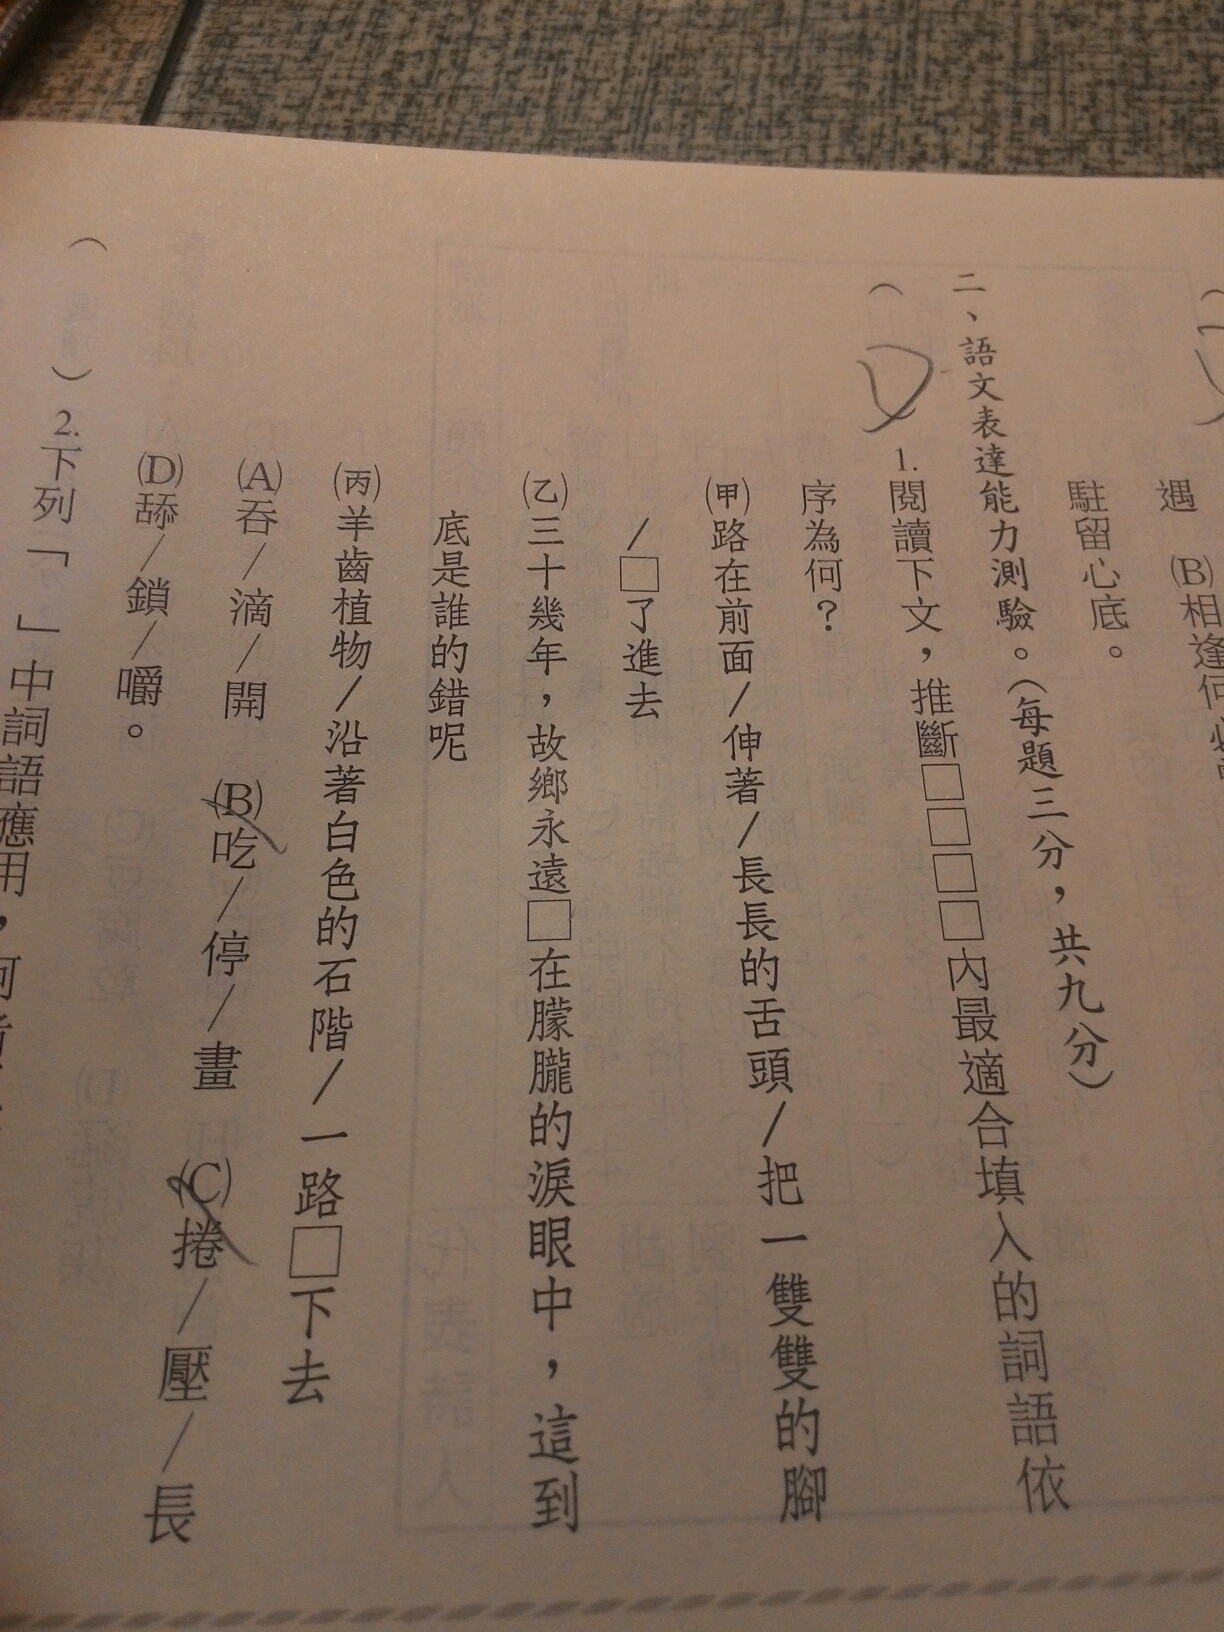 遇 (B)相逢何必
駐留心底。
二、語文表達能力測驗。（每題三分，共九分）
( D ) 1.閱讀下文，推斷□□□□內最適合填入的詞語依
序為何？
(甲)路在前面/伸著/長長的舌頭/把一雙雙的腳
/□了進去
(乙)三十幾年，故鄉永遠□在朦朧的淚眼中，這到
底是誰的錯呢
(丙)羊齒植物/沿著白色的石階/一路□下去
(A)吞/滴/開 (B)吃/停/畫 (C)捲/壓/長
(D)舔/鎖/嚼。
( ) 2.下列「 」中詞語應用，何